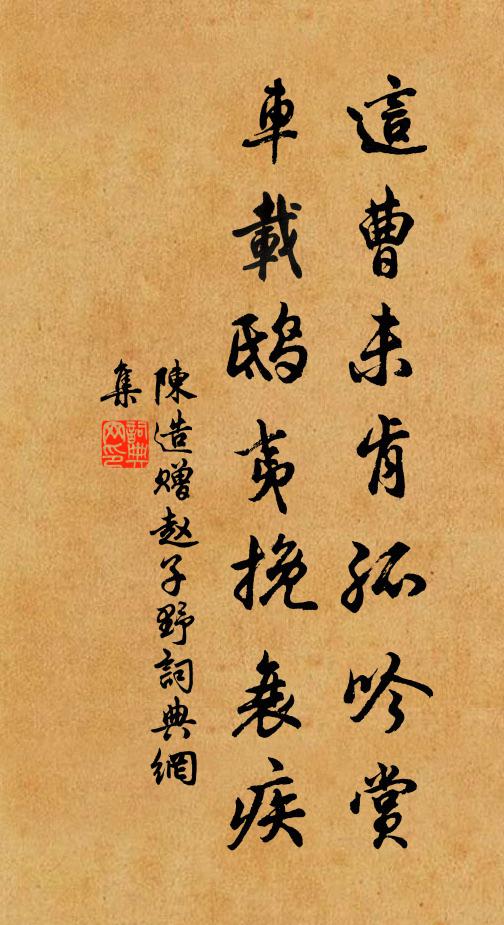 這曹未肯孤吟賞
車載鴟夷挽衰疾
陳造贈趙子野詞典網
集
詞典網印